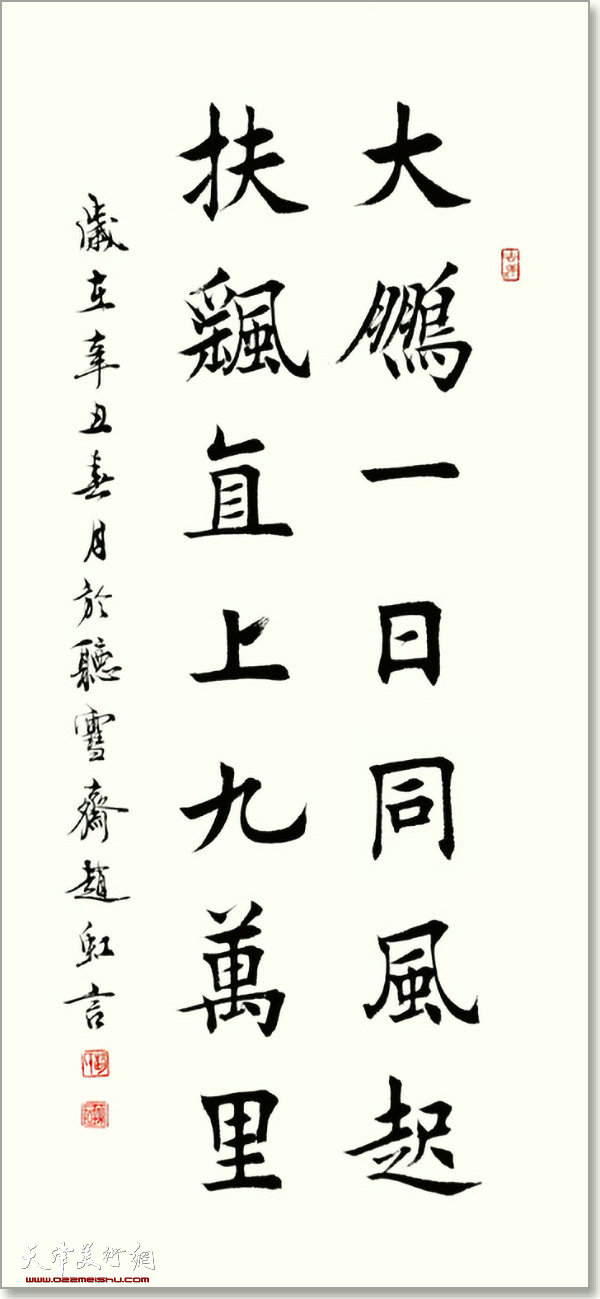 大鵬一日同風起
扶飄直上九萬里
歲在辛丑春月於聽雪齋趙虹言
天津美術網
www.022meishu.com